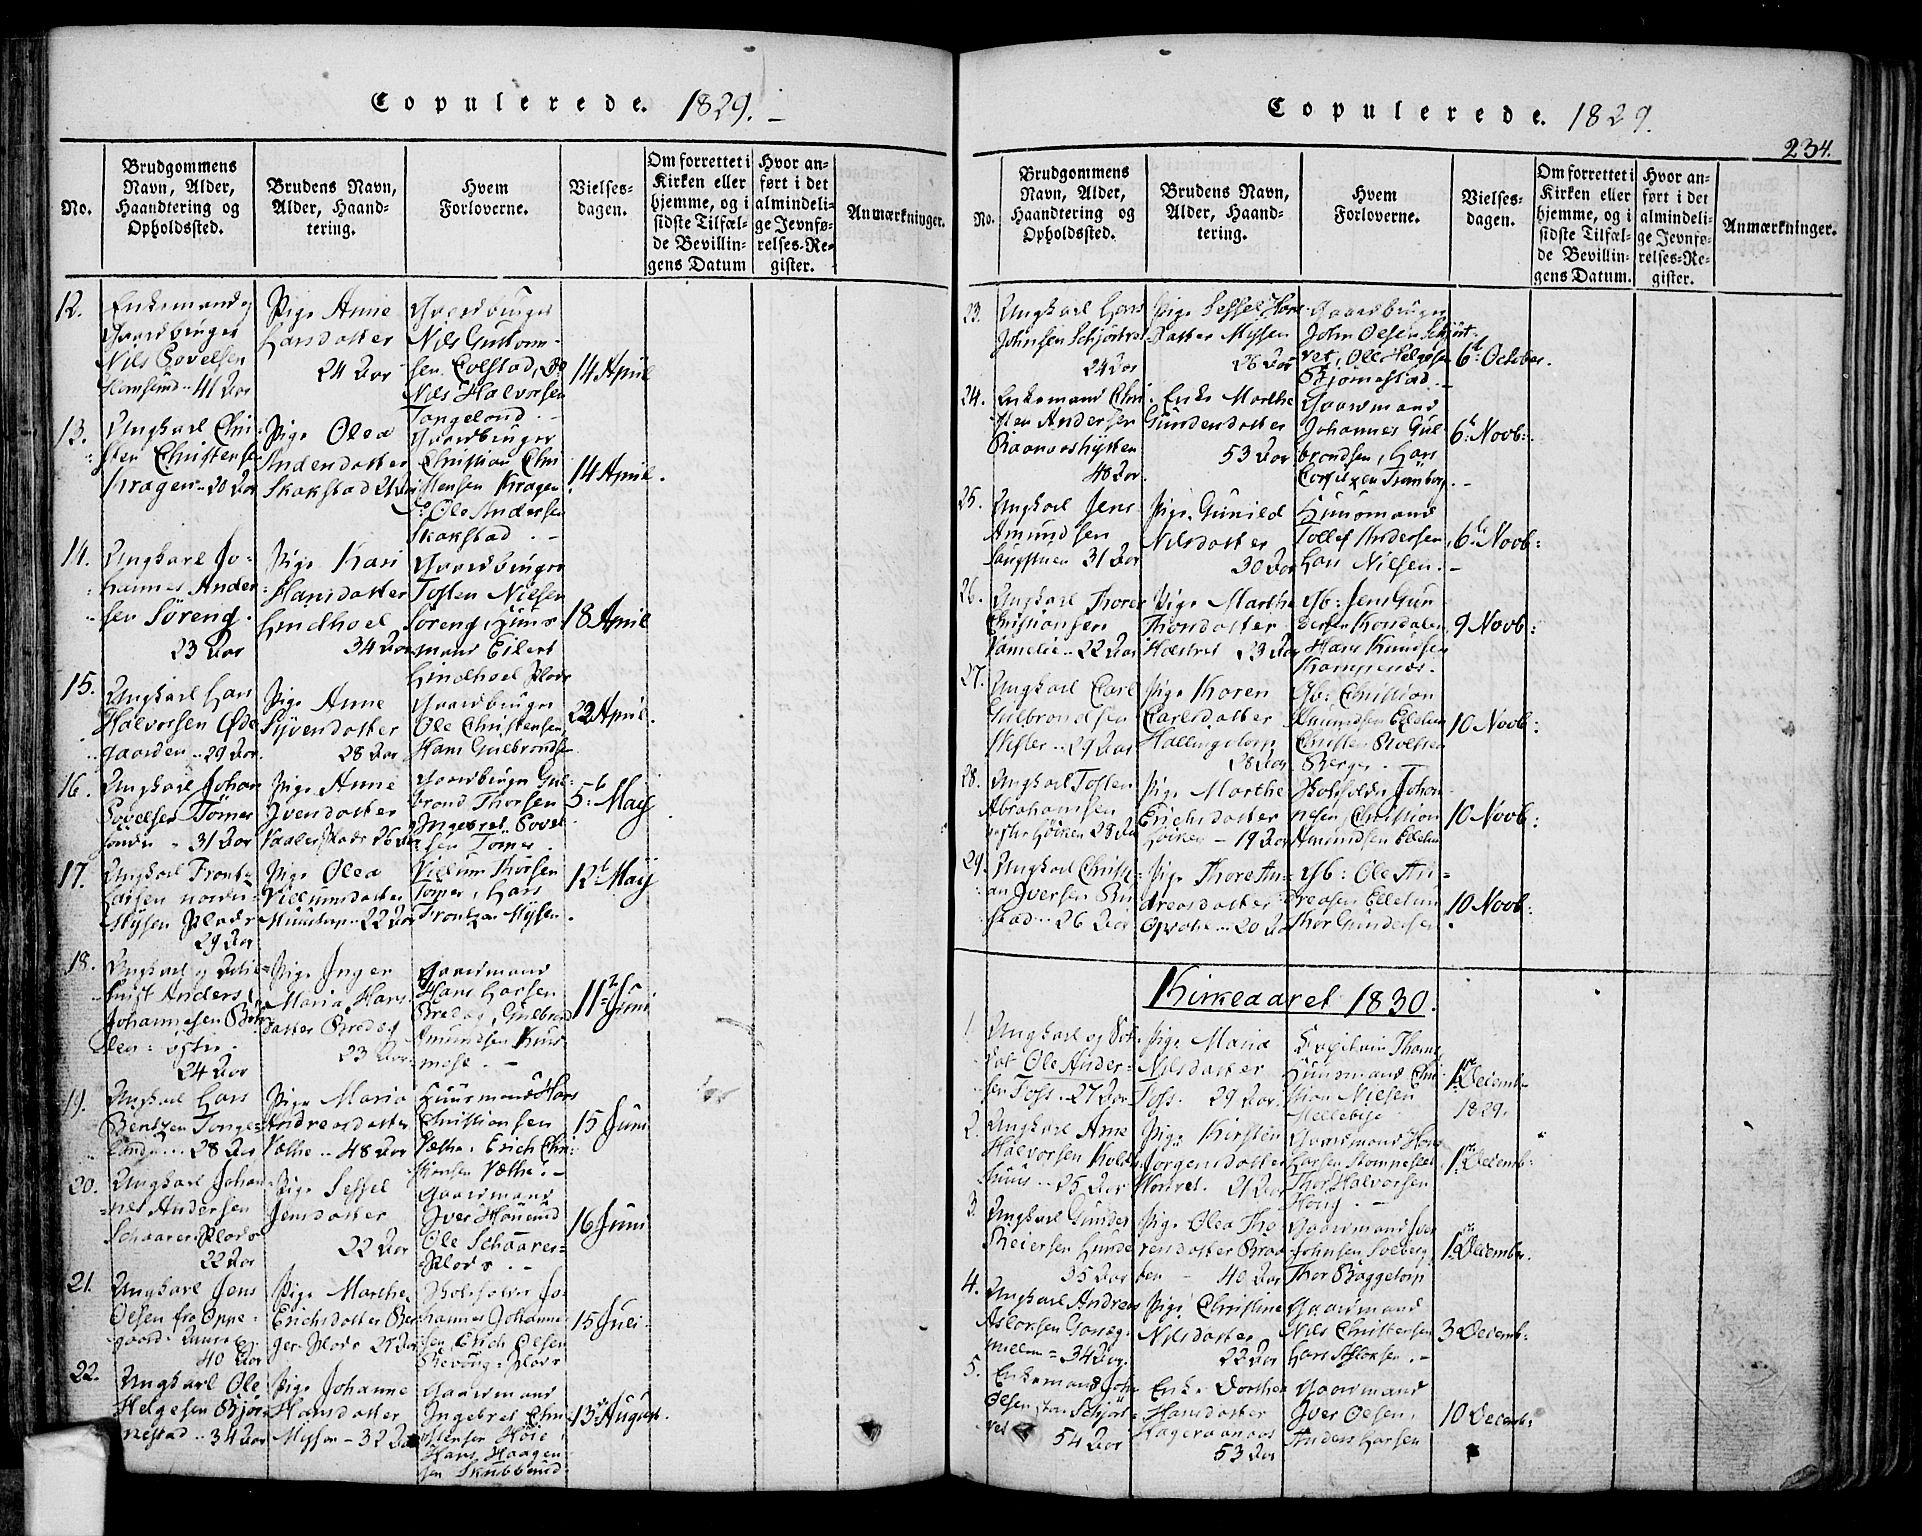 Copulerede. 1829.
No.
Brudgommens
Navn, Alder,
Haandtering og
Opholdssted.
Brudens Navn,
Alder, Haand-
tering.
Hvem
Forloverne.
Vielses-
dagen.
Om forrettet i
Kirken eller
hjemme, og i
sidste Tilfæl-
de Bevillin-
gens Datum
Hvor an-
ført i det
almindeli-
ge Jevnfø-
relses-Re-
gister.
Anmærkninger.
12.
Enkemand og
Gaardbruger
Nils Povelsen
41 Aar
Pige Anne
Larsdatter
24 Aar
Gaardbruger
Nils Guttorm-
sen Eolstad,
Nils Halvorsen
14 April
13.
Ungkarl Chri-
sten Christense
Kragen 30 Aar
Pige Olea
Andersdatter
Skakstad 21 Aar
Gaardbruger
Christian Chri
stensen Kragen
Ole Andersen
Skakstad
14 April.
14.
Ungkarl Jo-
hannes Ander
sen Søreng.
23 Aar
Pige Kari
Hansdatter
Lindhoel
34 Aar
Gaardbruger
Tosten Nielsen
Soreng, Huus
mand Eilert
Lindhoel Plads
18 April
15.
Ungkarl Lars
Halvorsen Øde
gaarden 29 Aar
Pige Anne
Syvendatter
28 Aar
Gaardbruger
Ole Christensen,
Hans Gulbrandse
22 April.
16.
Ungkarl Johan
Povelsen Tømer
31 Aar
Pige Anne
Iversdatter
26 Aar
Gaardbruger Gul
brand Thorsen
Ingebret Povel
sen Tomer.
5te May
17.
Ungkarl Frantz
Larsen nordre
Mysen Plads
29 Aar
Pige Olea
Villumsdatter
22 Aar
Villum Thorsen
Tomer, Lars
Frantzen Mysen.
12t May
18.
Ungkarl og
Anders
Johannesen
østre.
24 Aar
Pige Inger
Maria Hans
datter Breding
23 Aar
Gaardmand
Hans Larsen
Amundsen
11te Juni
19.
Ungkarl Lars
Bentzen Tange-
28 Aar
Pige Maria
Andreasdatter
Væthe 48 Aar
Huusmand Hans
Christiansen
Væthe. Erich Chri
stensen Væthe.
15 Juni
20.
Ungkarl Johan
nes Andersen
Schaaren Plads
22 Aar
Pige Sessel
Jensdatter
22 Aar
Gaardmand
Iver
Ole Schaaren
Plads.
16 Juni
21.
Ungkarl Jens
Olsen fra Oppe
gaard
40 Aar
Pige Marthe
Erichsdatter Ber
ger Plads 27 Aar
Jo-
hannes Johanne
sen, Erich Olsen
Revoug Plads
15 Juli
22.
Ungkarl Ole
Helgesen Bjør
nestad 34 Aar
Pige Johanne
Hansdatter
Mysen 32 Aar
Gaardmand
Ingebret Chri
stensen Høie
Hans Haagen
sen Skubberud
13 August.
Copulerede. 1829.
234.
No.
Brudgommens
Navn, Alder,
Haandtering og
Opholdssted.
Brudens Navn,
Alder, Haand-
tering.
Hvem
Forloverne.
Vielses-
dagen.
Om forrettet i
Kirken eller
hjemme, og i
sidste Tilfæl-
de Bevillin-
gens Datum.
Hvor an-
ført i det
almindeli-
ge Jevnfø-
relses-Re-
gister.
Anmærkninger.
23.
Ungkarl Lars
Johnsen Schjørtvet
24 Aar
Pige Sessel Hans
datter Mysen
28 Aar
Gaardbruger
John Olsen Schjørt-
vet, Ole Helgesen
Bjørnestad
6t October.
24.
Enkemand Chri
sten Andersen
Raanaashytten
48 Aar
Enke Marthe
Gundersdatter
53 Aar
Gaardmand
Johannes Gul
brandsen, Lars
Tromborg
6t Novb:
25.
Ungkarl Jens
Amundsen
31 Aar
Pige Gunild
Nilsdatter
30 Aar
Huusmand
Tollef Andersen
Lars Nielsen.
6te Novb:
26.
Ungkarl Thorer
Christiansen
22 Aar
Pige Marthe
Thorsdatter
23 Aar
Gb: Jens Gun
dersen
Hans Knudsen
9 Novb:
27.
Ungkarl Carl
Gulbrandsen
29 Aar
Pige Karen
Carlsdatter
Hallingstorp
28 Aar
Gb: Christian
Amundsen Eilelun
Christen
Berger
10 Novb:
28.
Ungkarl Tosten
Abrahamsen
28 Aar
Pige Marthe
Erichsdatter
19 Aar
Johan
nesen Christian
Amundsen Eilelun
10 Novb:
29.
Ungkarl Christi
an Iversen Ru
stad 26 Aar
Pige Thore An-
dreasdatter
20 Aar
Gb: Ole An-
dreasen Eilelun
Thor Gundersen
10 Novb:
Kirkeaaret 1830.
1.
Ungkarl og Sol-
dat Ole Ander-
sen Foss 27 Aar
Pige Maria
Nilsdatter
Foss. 29 Aar.
Huusmand Chri
stian Nielsen
Mellebye
1ste Decemb
1829.
2.
Ungkarl Arne
Halvorsen
25 Aar
Pige Kirsten
Jørgensdatter
21 Aar
Gaardmand Hans
Larsen
Thor Halvorsen
Haug
1ste Decemb:
3.
Ungkarl Gunder
Reiersen Lunde
35 Aar
Pige Olea Tho
rersdatter Braa
ten 40 Aar
Gaardmand Iver
Johnsen Solberg
Thor Baggetorp
1ste Decembr.
4.
Ungkarl Andreas
Aslaksen
34 Aar.
Pige Christine
Nilsdatter
22 Aar
Gaardmand
Nils Christensen
Lars Aslaksen.
3 Decemb:
5.
Enkemand John
Olsen Schjørt-
vet
54 Aar
Enke Dorthea
Hansdatter
53 Aar
Gaardmand
Iver Olsen,
Anders Larsen
10 Decemb: